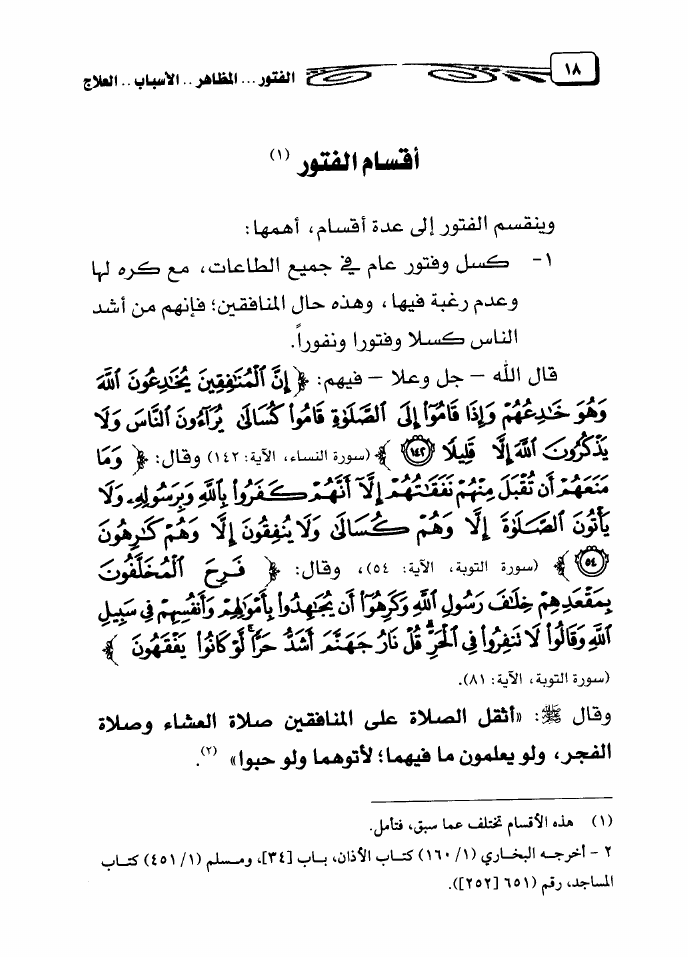 ١٨ الفتور... المظاهر.. الأسباب.. العلاج
أقسام الفتور (١)
وينقسم الفتور إلى عدة أقسام، أهمها:
١- كسل وفتور عام في جميع الطاعات، مع كره لها
وعدم رغبة فيها، وهذه حال المنافقين؛ فإنهم من أشد
الناس كسلا وفتورا ونفوراً.
قال الله – جل وعلا – فيهم: ﴿ إِنَّ الْمُنَافِقِينَ يُخَادِعُونَ اللَّهَ
وَهُوَ خَادِعُهُمْ وَإِذَا قَامُوا إِلَى الصَّلَوٰةِ قَامُوا كُسَالَىٰ يُرَاءُونَ النَّاسَ وَلَا
يَذْكُرُونَ اللَّهَ إِلَّا قَلِيلًا ١٤٢ ﴾ (سورة النساء، الآية: ١٤٢) وقال: ﴿ وَمَا
مَنَعَهُمْ أَن تُقْبَلَ مِنْهُمْ نَفَقَاتُهُمْ إِلَّا أَنَّهُمْ كَفَرُوا بِاللَّهِ وَبِرَسُولِهِ وَلَا
يَأْتُونَ الصَّلَوٰةَ إِلَّا وَهُمْ كُسَالَىٰ وَلَا يُنفِقُونَ إِلَّا وَهُمْ كَارِهُونَ
٥٤ ﴾ (سورة التوبة، الآية: ٥٤)، وقال: ﴿ فَرِحَ الْمُخَلَّفُونَ
بِمَقْعَدِهِمْ خِلَافَ رَسُولِ اللَّهِ وَكَرِهُوا أَن يُجَاهِدُوا بِأَمْوَالِهِمْ وَأَنفُسِهِمْ فِي سَبِيلِ
اللَّهِ وَقَالُوا لَا تَنفِرُوا فِي الْحَرِّ قُلْ نَارُ جَهَنَّمَ أَشَدُّ حَرًّا لَّوْ كَانُوا يَفْقَهُونَ ﴾
(سورة التوبة، الآية: ٨١).
وقال ﷺ: «أثقل الصلاة على المنافقين صلاة العشاء وصلاة
الفجر، ولو يعلمون ما فيهما؛ لأتوهما ولو حبوا» (٢).
(١) هذه الأقسام تختلف عما سبق، فتأمل.
٢ - أخرجه البخاري (١/ ١٦٠) كتاب الأذان، باب [٣٤]، ومسلم (١/ ٤٥١) كتاب
المساجد، رقم (٦٥١ [٢٥٢]).